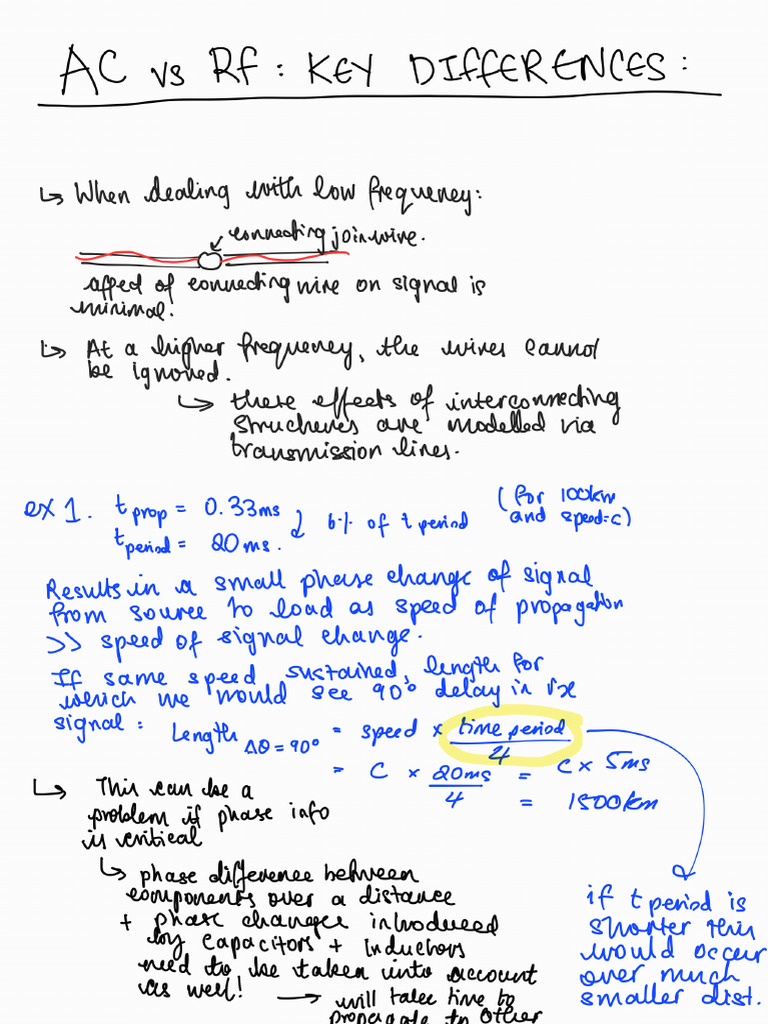 AC vs Rf: KEY DIFFERENCES:
↳ When dealing with low frequency:
connecting join wire.
affect of connecting wire on signal is
minimal!
↳ At a higher frequency, the wires cannot
be ignored.
↳ these effects of interconnecting
structures are modelled via
transmission lines.
ex 1. t prop = 0.33ms
t period = 20 ms.
6% of t period
(for 100km
and speed=c)
Results in a small phase change of signal
from source to load as speed of propagation
>> speed of signal change.
If same speed sustained, length for
which we would see 90° delay in rx
signal:
Length Δθ = 90° = speed × time period / 4
= C × 20ms / 4 = C × 5ms
= 1500km
↳ This can be a
problem if phase info
is critical
↳ phase difference between
components over a distance
+ phase changes introduced
by capacitors + inductors
need to be taken into account
as well!
→ will take time to
propagate to other
if t period is
shorter this
would occur
over much
smaller dist.